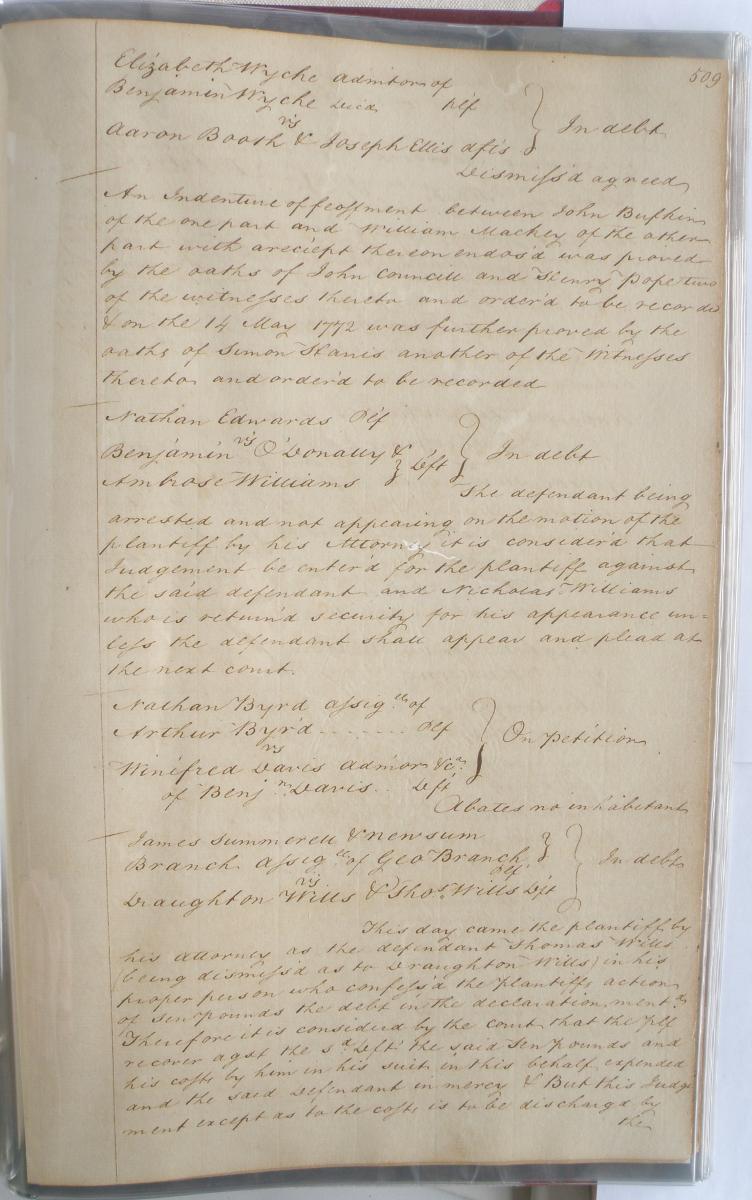 509
Elizabeth Wyche admitors of
Benjamin Wyche Decd plf
vs
Aaron Booth & Joseph Ellis dfts
In debt
Dismiss'd agreed
An Indenture of feoffment between John Bufkin
of the one part and William Mackey of the other
part with a reciept thereon endos'd was proved
by the oaths of John Councell and Henry Pope two
of the witnesses thereto and order'd to be recorded
& on the 14 May 1772 was further proved by the
oaths of Simon Hanis another of the Witnesses
thereto and order'd to be recorded
Nathan Edwards Plf
vs
Benjamin O'Donally &
Ambrose Williams
Dft
In debt
The defendant being
arrested and not appearing on the motion of the
plantiff by his Attorney it is consider'd that
Judgement be enter'd for the plantiff against
the said defendant and Nicholas Williams
who is return'd security for his appearance un=
less the defendant shall appear and plead at
the next court.
Nathan Byrd assig.ee of
Arthur Byrd........ Plf
vs
Winifred Davis admor &ca
of Benj.n Davis.. Deft
On Petition
Abates no inhabitant
James Summerell & newsum
Branch assig.ee of Geo Branch
plf
vs
Draughton Wills & Thos. Wills Dft
In debt
This day came the plantiff by
his attorney as the defendant Thomas Wills
(being dismiss'd as to Draughton Wills) in his
proper person who confess'd the plantiffs action
of Ten pounds the debt in the declaration ment.d
Therefore it is considerd by the court that the plf
recover agst the sd Deft the said Ten pounds and
his costs by him in his suit in this behalf expended
and the said Defendant in mercy & But this Judge
ment except as to the costs is to be dischargd by
the